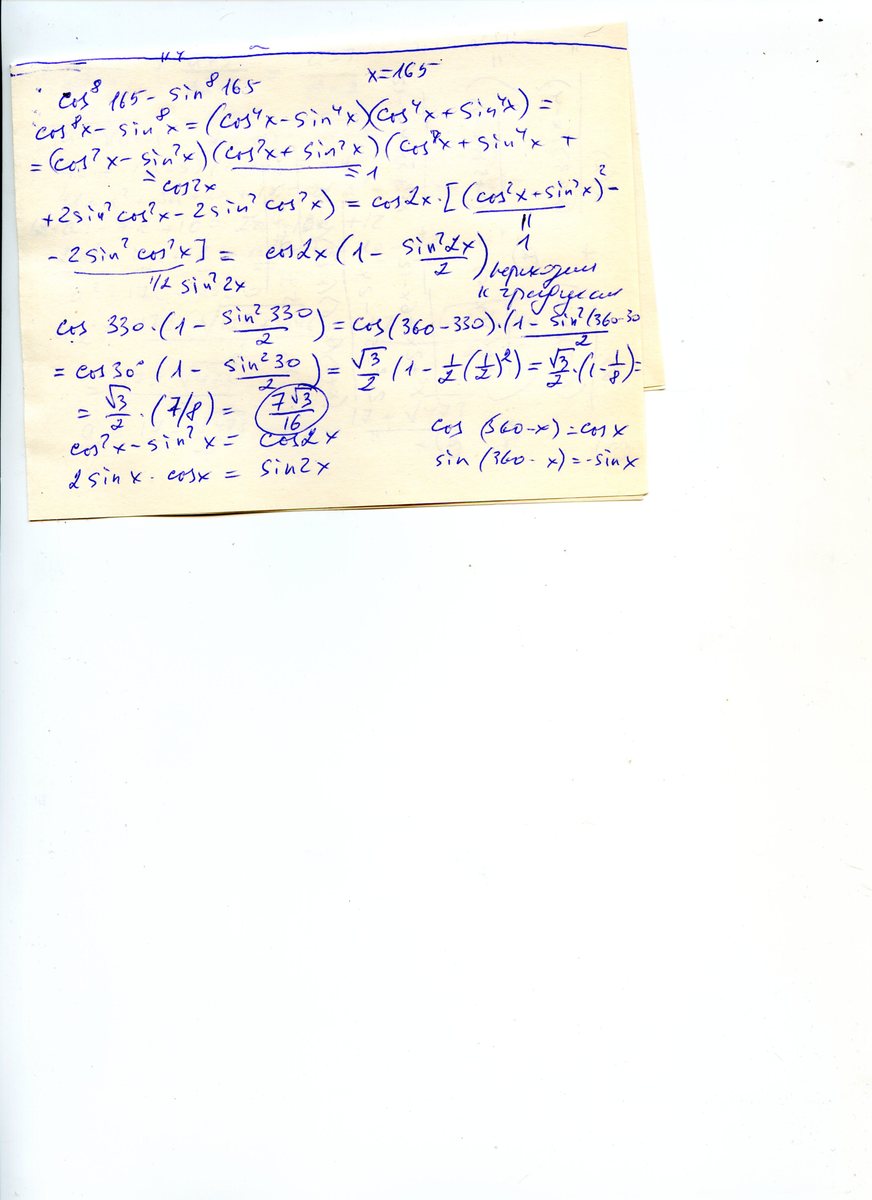 x=165
cos⁸ 165 - sin⁸ 165
cos⁸x - sin⁸x = (cos⁴x - sin⁴x)(cos⁴x + sin⁴x) =
= (cos²x - sin²x)(cos²x + sin²x)(cos⁴x + sin⁴x +
= cos2x = 1
+ 2sin² cos²x - 2sin² cos²x) = cos2x · [(cos²x + sin²x)² -
- 2sin² cos²x] = cos2x (1 - sin²2x/2) 1
1/2 sin² 2x переходим
к градусам
cos 330 · (1 - sin² 330/2) = cos(360-330) · (1 - sin²(360-30/2
= cos30° (1 - sin² 30/2) = √3/2 (1 - 1/2 (1/2)²) = √3/2 · (1 - 1/8) =
= √3/2 · (7/8) = 7√3/16
cos²x - sin²x = cos2x cos (360-x) = cosx
2sinx · cosx = sin2x sin (360-x) = -sinx